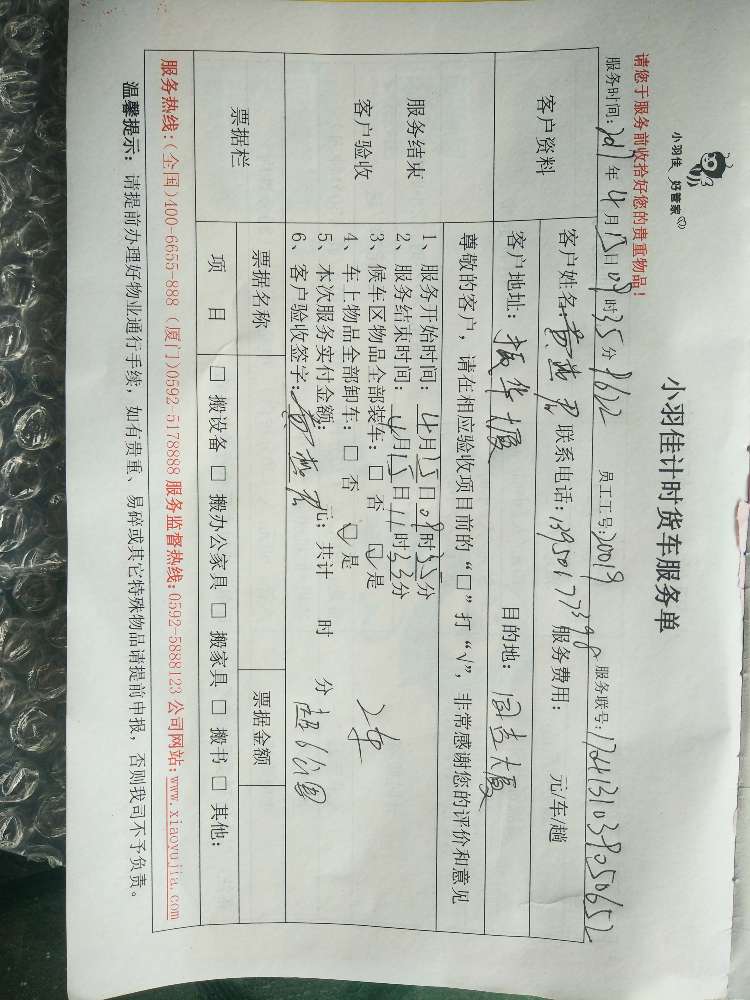 小羽佳 好管家
小羽佳计时货车服务单
请您于服务前收拾好您的贵重物品!
服务时间: 2017年4月15日09时35分 8622 员工工号: 20019 服务联号: 17041310398050652
客户资料
客户姓名: 联系电话: 13950177398 服务费用: 元/车/趟
客户地址: 振华大厦 目的地: 国贸大厦
服务结束
客户验收
尊敬的客户,请在相应验收项目前的“□”打“√”,非常感谢您的评价和意见
1、服务开始时间: 4月15日09时35分
2、服务结束时间: 4月15日11时33分
3、候车区物品全部装车: □ 否 ☑ 是
4、车上物品全部卸车: □ 否 ☑ 是
5、本次服务实付金额: 元; 共计 时 分
6、客户验收签字:
2车
超6公里
票据栏
票据名称 票据金额
项 目 □ 搬设备 □ 搬办公家具 □ 搬家具 □ 搬书 □ 其他:
服务热线:(全国)400-6655-888 (厦门)0592-5178888 服务监督热线:0592-5888123 公司网站:www.xiaoyujia.com
温馨提示: 请提前办理好物业通行手续,如有贵重、易碎或其它特殊物品请提前申报,否则我司不予负责。